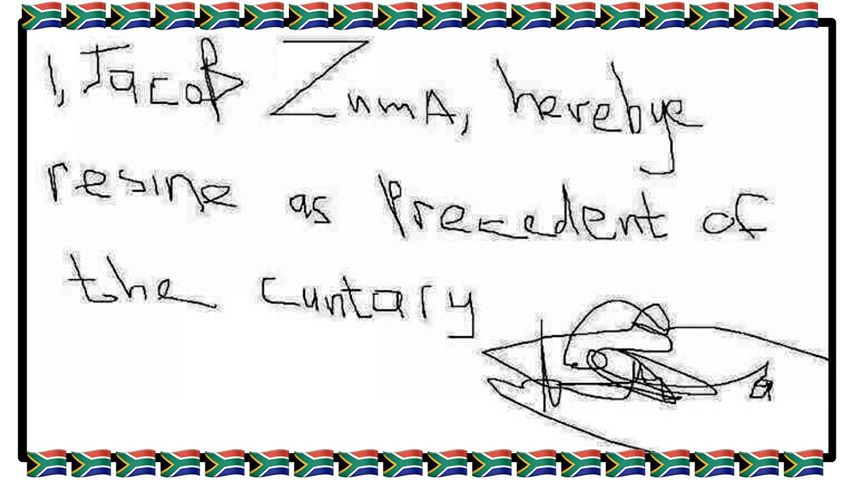 I, Jacob ZumA, herebye
resine as Precedent of
the cuntary